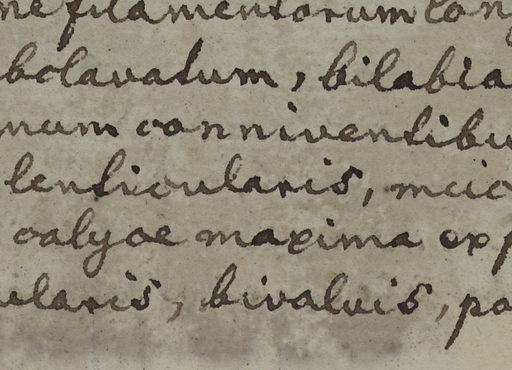 ne filamentorum long
bclavatum, bilabia
num conniventibu
lenticularis,
calyce maxima exp
ularis, bivalvis, pa